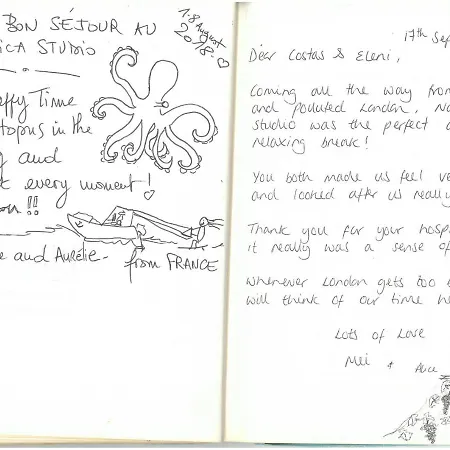 BON SÉJOUR AU
ICA STUDIO
1-8 August
2018
ppy Time
topus in the
and
every moment!
!!
and Aurélie
from FRANCE
17th Sep
Dear Costas & Eleni,
Coming all the way from
and polluted London, N
studio was the perfect
relaxing break!
You both made us feel ve
and looked after us really
Thank you for your hosp
it really was a sense of
Whenever London gets too
will think of our time h
Lots of Love
Mei + Alice